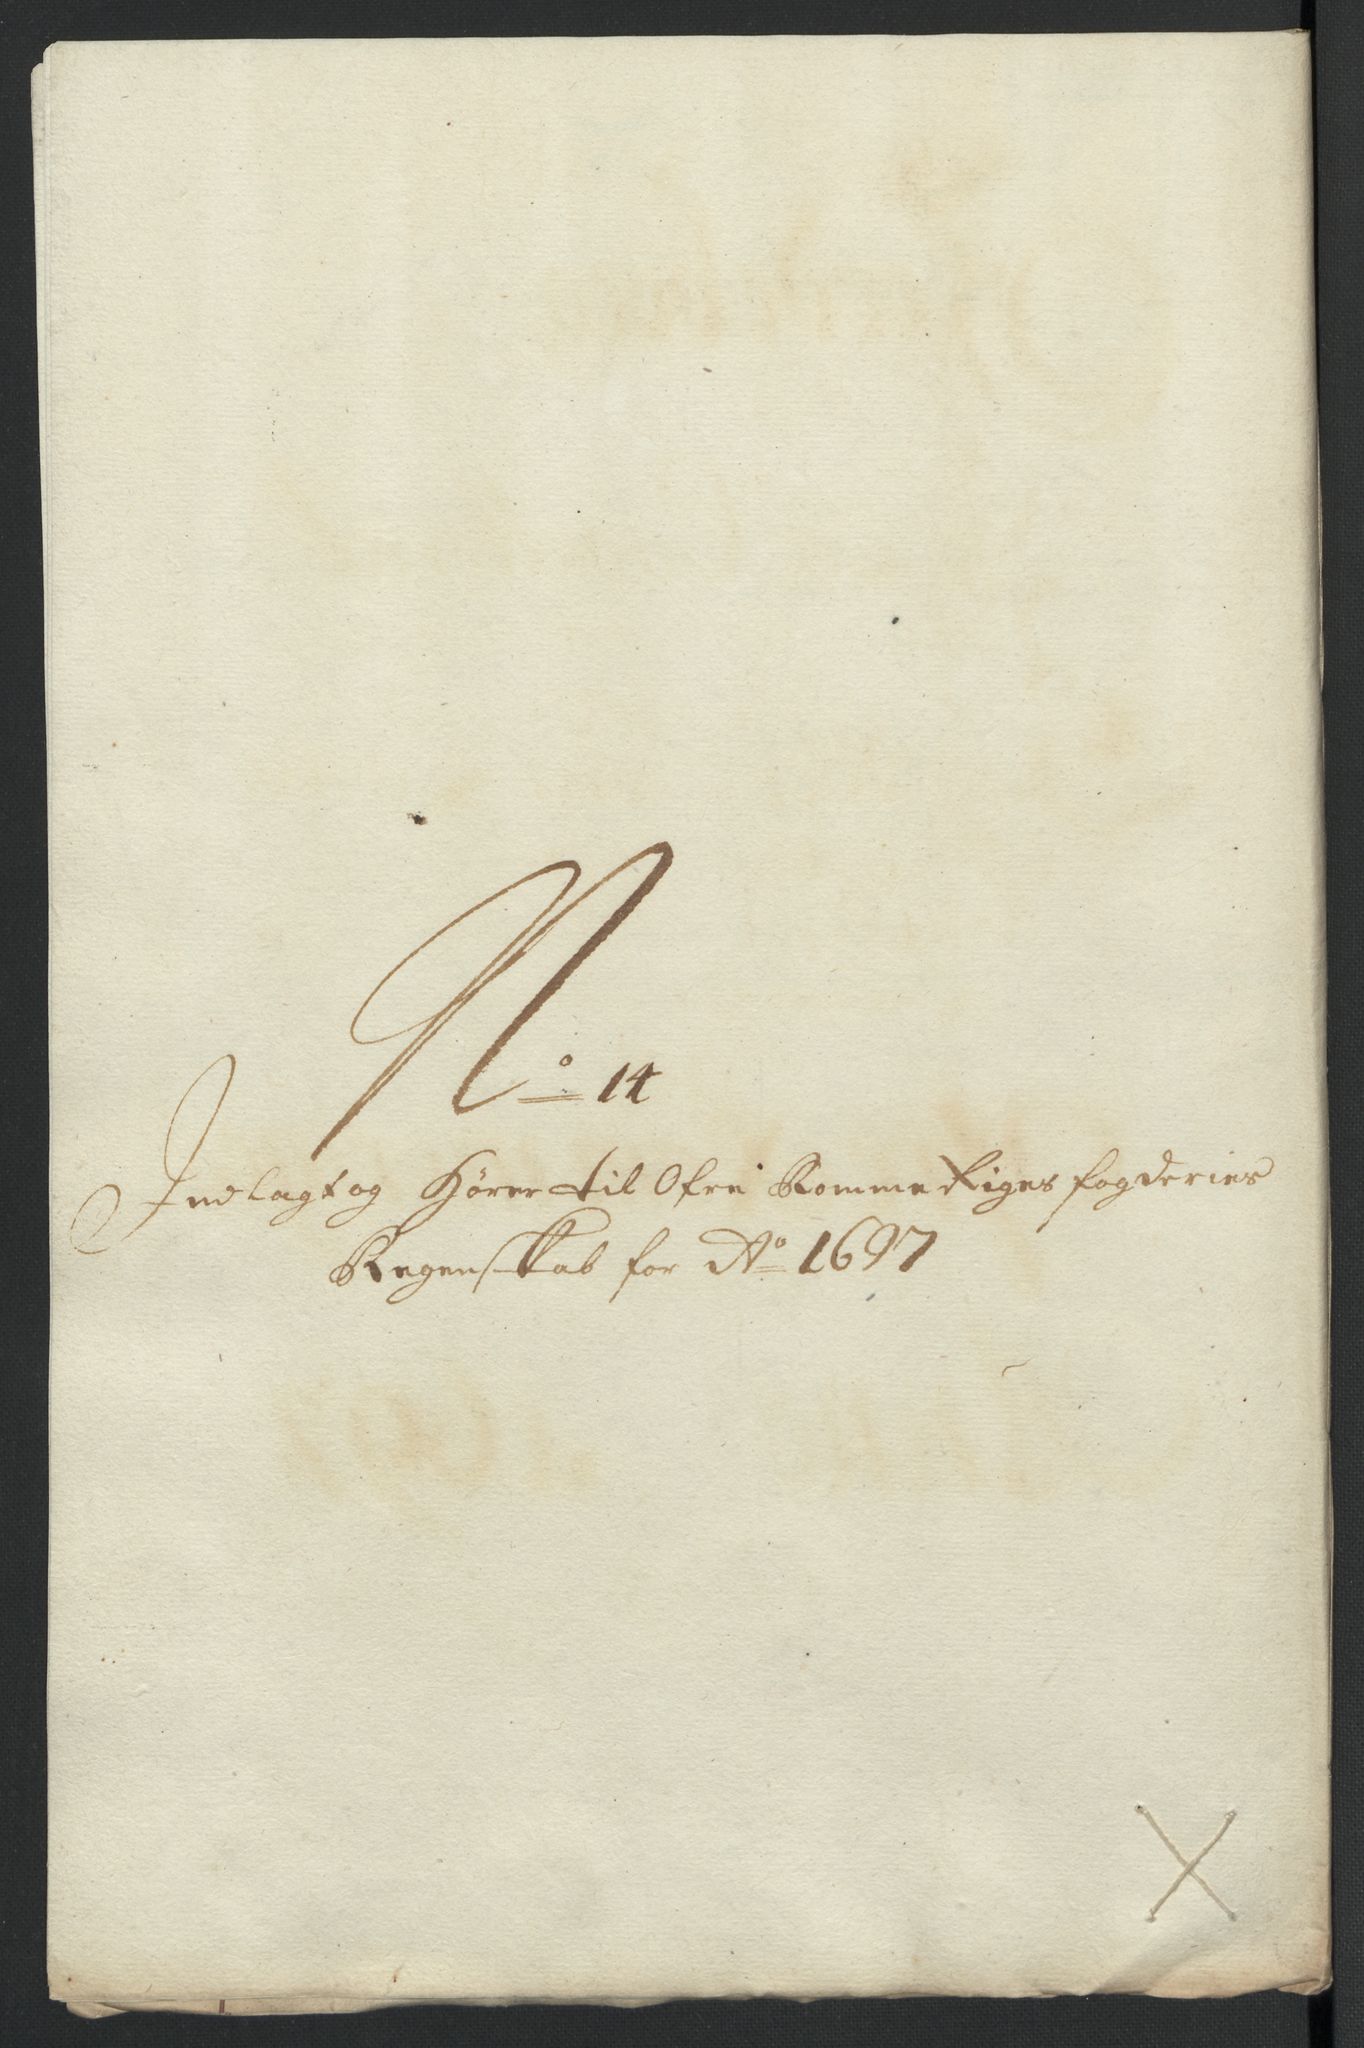 No 14
Indlagt og Hører til Ofre Romme Riges fogderies
Regenskab for Ao 1697